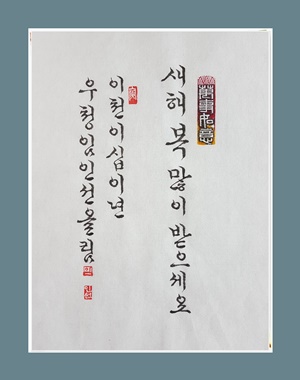 萬事如意
새해 복 많이 받으세요
이천이십이년
우정임인선올림